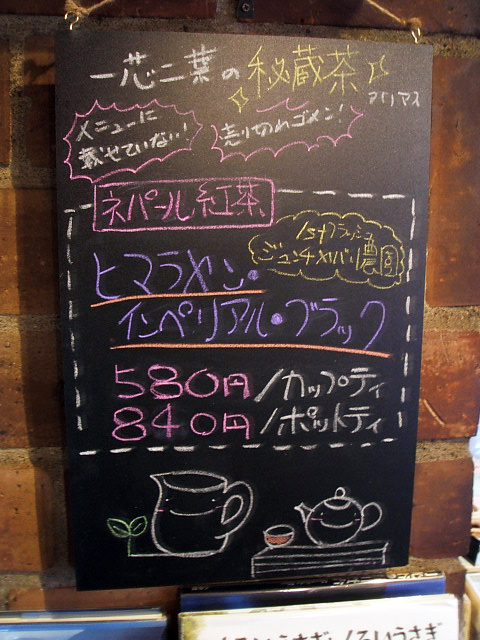 一芯二葉の秘蔵茶
アリマス
メニューに
載せていない!
売り切れゴメン!
ネパール紅茶
1stフラッシュ
ジュンチヤバリ農園
ヒマラヤン・
インペリアル・ブラック
580円/カップティ
840円/ポットティ